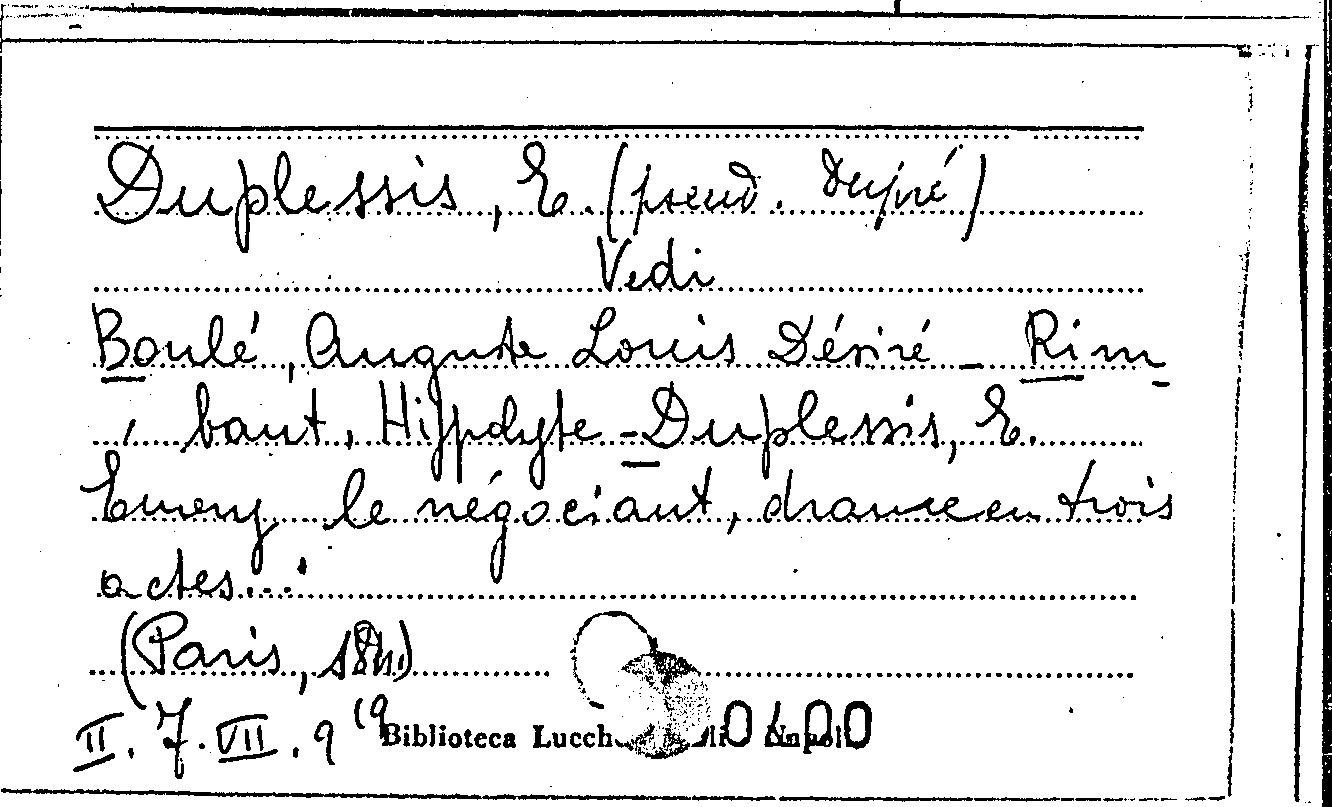 Duplessis, E. (pseud. Dupré)
Vedi
Boulé, Auguste Louis Désiré - Rim
baut, Hippolyte - Duplessis, E.
Emery le négociant, drame en trois
actes...
(Paris,
II. 7. VII. 9 (9
Biblioteca Lucch